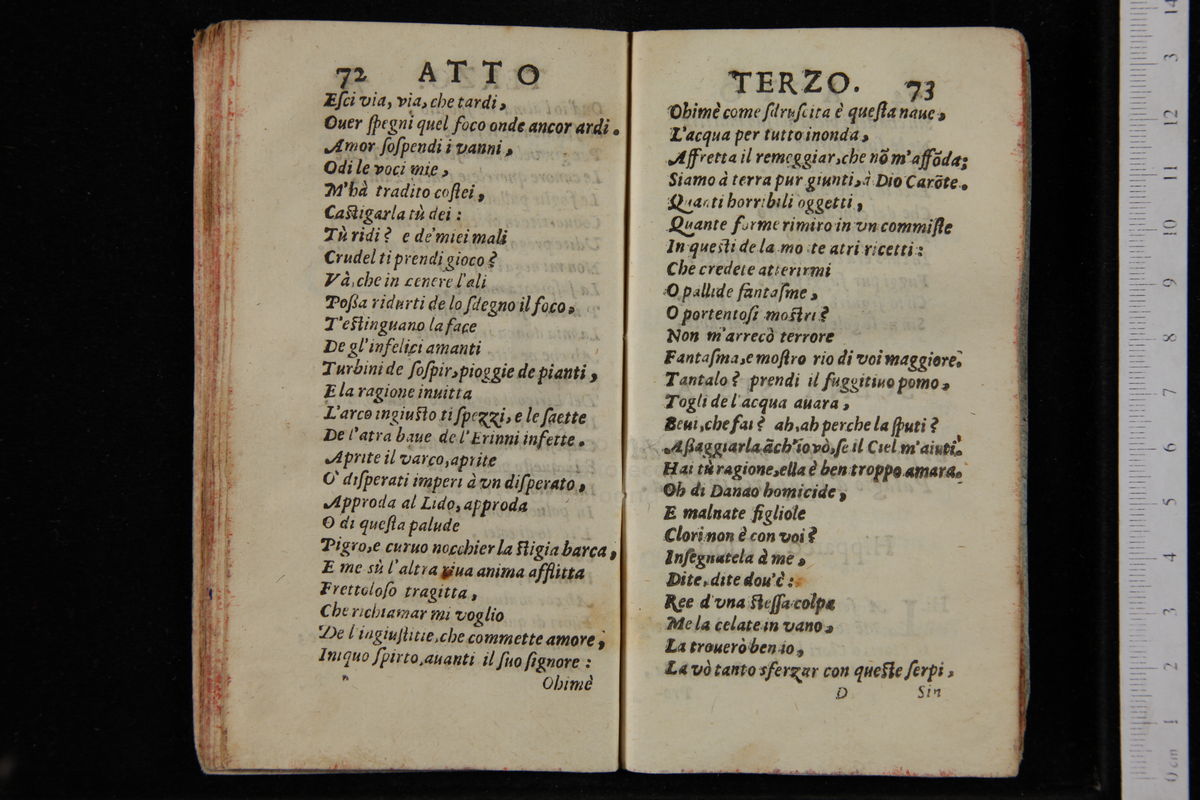 72 ATTO
Eſci via, via, che tardi,
Ouer ſpegni quel foco onde ancor ardi.
Amor ſoſpendi i vanni,
Odi le voci mie,
M'hà tradito coſtei,
Caſtigarla tù dei:
Tù ridi? e de' miei mali
Crudel ti prendi gioco?
Và, che in cenere l'ali
Poſſa ridurti de lo ſdegno il foco,
T'eſtinguano la face
De gl'infelici amanti
Turbini de ſoſpir, pioggie de pianti,
E la ragione inuitta
L'arco ingiuſto ti ſpezzi, e le ſaette
De l'atra baue de l'Erinni infette.
Aprite il varco, aprite
O' diſperati imperi à vn diſperato,
Approda al Lido, approda
O di queſta palude
Pigro, e curuo nocchier la ſtigia barca,
E me sù l'altra riua anima afflitta
Frettoloſo tragitta,
Che richiamar mi voglio
De l'ingiuſtitie, che commette amore,
Iniquo ſpirto, auanti il ſuo ſignore:
Ohimè
TERZO. 73
Ohimè come ſdruſcita è queſta naue,
L'acqua per tutto inonda,
Affretta il remeggiar, che nõ m'affõda;
Siamo à terra pur giunti, à Dio Carõte.
Quanti horribili oggetti,
Quante forme rimiro in vn commiſte
In queſti de la morte atri ricetti:
Che credete atterirmi
O pallide fantaſme,
O portentoſi moſtri?
Non m'arrecò terrore
Fantaſma, e moſtro rio di voi maggiore.
Tantalo? prendi il fuggitiuo pomo,
Togli de l'acqua auara,
Beui, che fai? ah, ah perche la ſputi?
Aſſaggiarla ãch'io vò, ſe il Ciel m'aiuti.
Hai tù ragione, ella è ben troppo amara.
Oh di Danao homicide,
E malnate figliole
Clori non è con voi?
Inſegnatela à me,
Dite, dite dou'è:
Ree d'vna ſteſſa colpa
Me la celate in vano,
La trouerò ben io,
La vò tanto sferzar con queſte ſerpi,
D Sin